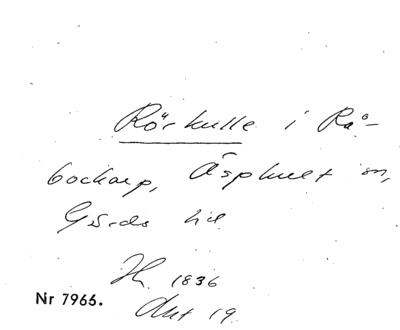 Rörkulle i Rå-
bockarp, Äsphult sn,
Gärds hd
Hk 1836
Nr 7966. Akt 19